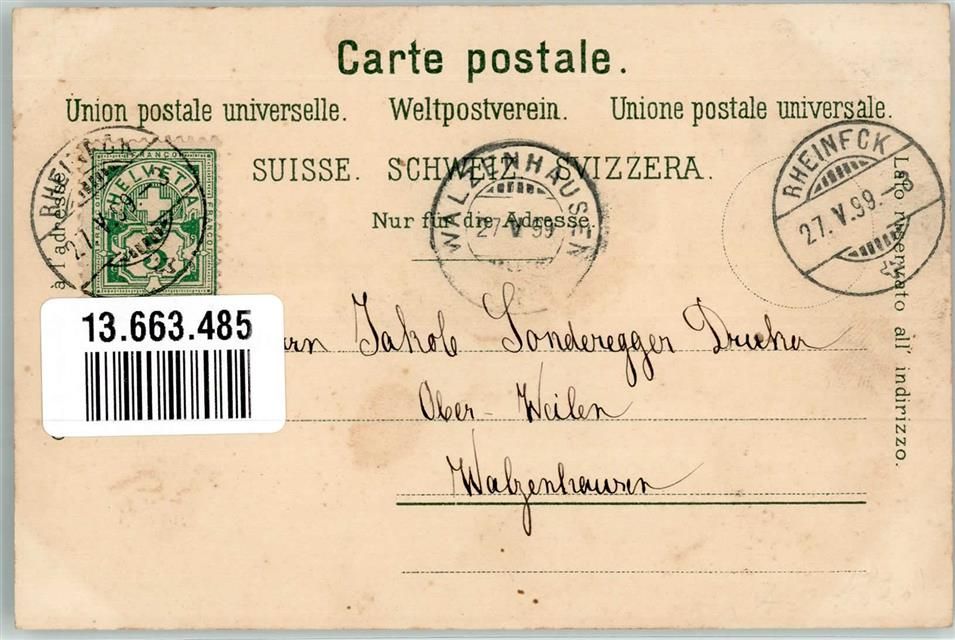 Carte postale.
Union postale universelle. Weltpostverein. Unione postale universale.
SUISSE. SCHWEIZ. SVIZZERA.
Nur für die Adresse.
à l'adresse.
Lato riservato all' indirizzo.
RHEINECK
27.V.99.
FRANCO
HELVETIA
FRANCO
5
WALZENHAUSEN
27.V.99
RHEINECK
27.V.99.
13.663.485
rn Jakob Sonderegger Drucker
Ober-Weilen
Walzenhausen